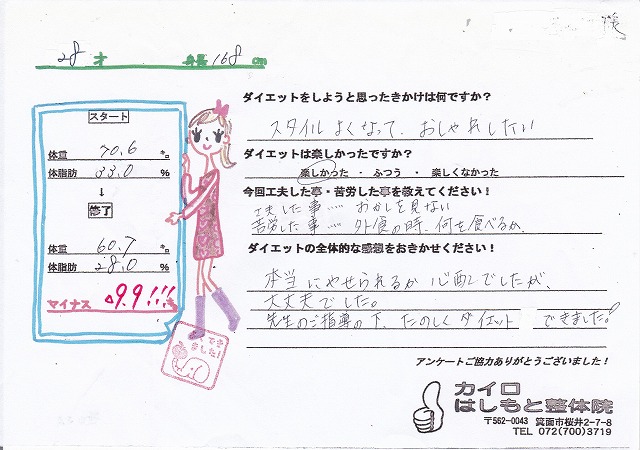 28才 身長168cm
スタート
体重 70.6 ㌔
体脂肪 33.0 %
↓
修了
体重 60.7 ㌔
体脂肪 28.0 %
マイナス △9.9!!!㌔
よくでき
ました!
ダイエットをしようと思ったきかけは何ですか？
スタイルよくなって、おしゃれしたい
ダイエットは楽しかったですか？
楽しかった ・ ふつう ・ 楽しくなかった
今回工夫した事・苦労した事を教えてください！
工夫した事…… おかしを見ない
苦労した事…… 外食の時、何を食べるか、
ダイエットの全体的な感想をおきかせください！
本当にやせられるか心配でしたが、
大丈夫でした。
先生のご指導の下、たのしくダイエット できました！
アンケートご協力ありがとうございました！
カイロ
はしもと整体院
〒562-0043 箕面市桜井2-7-8
TEL 072(700)3719